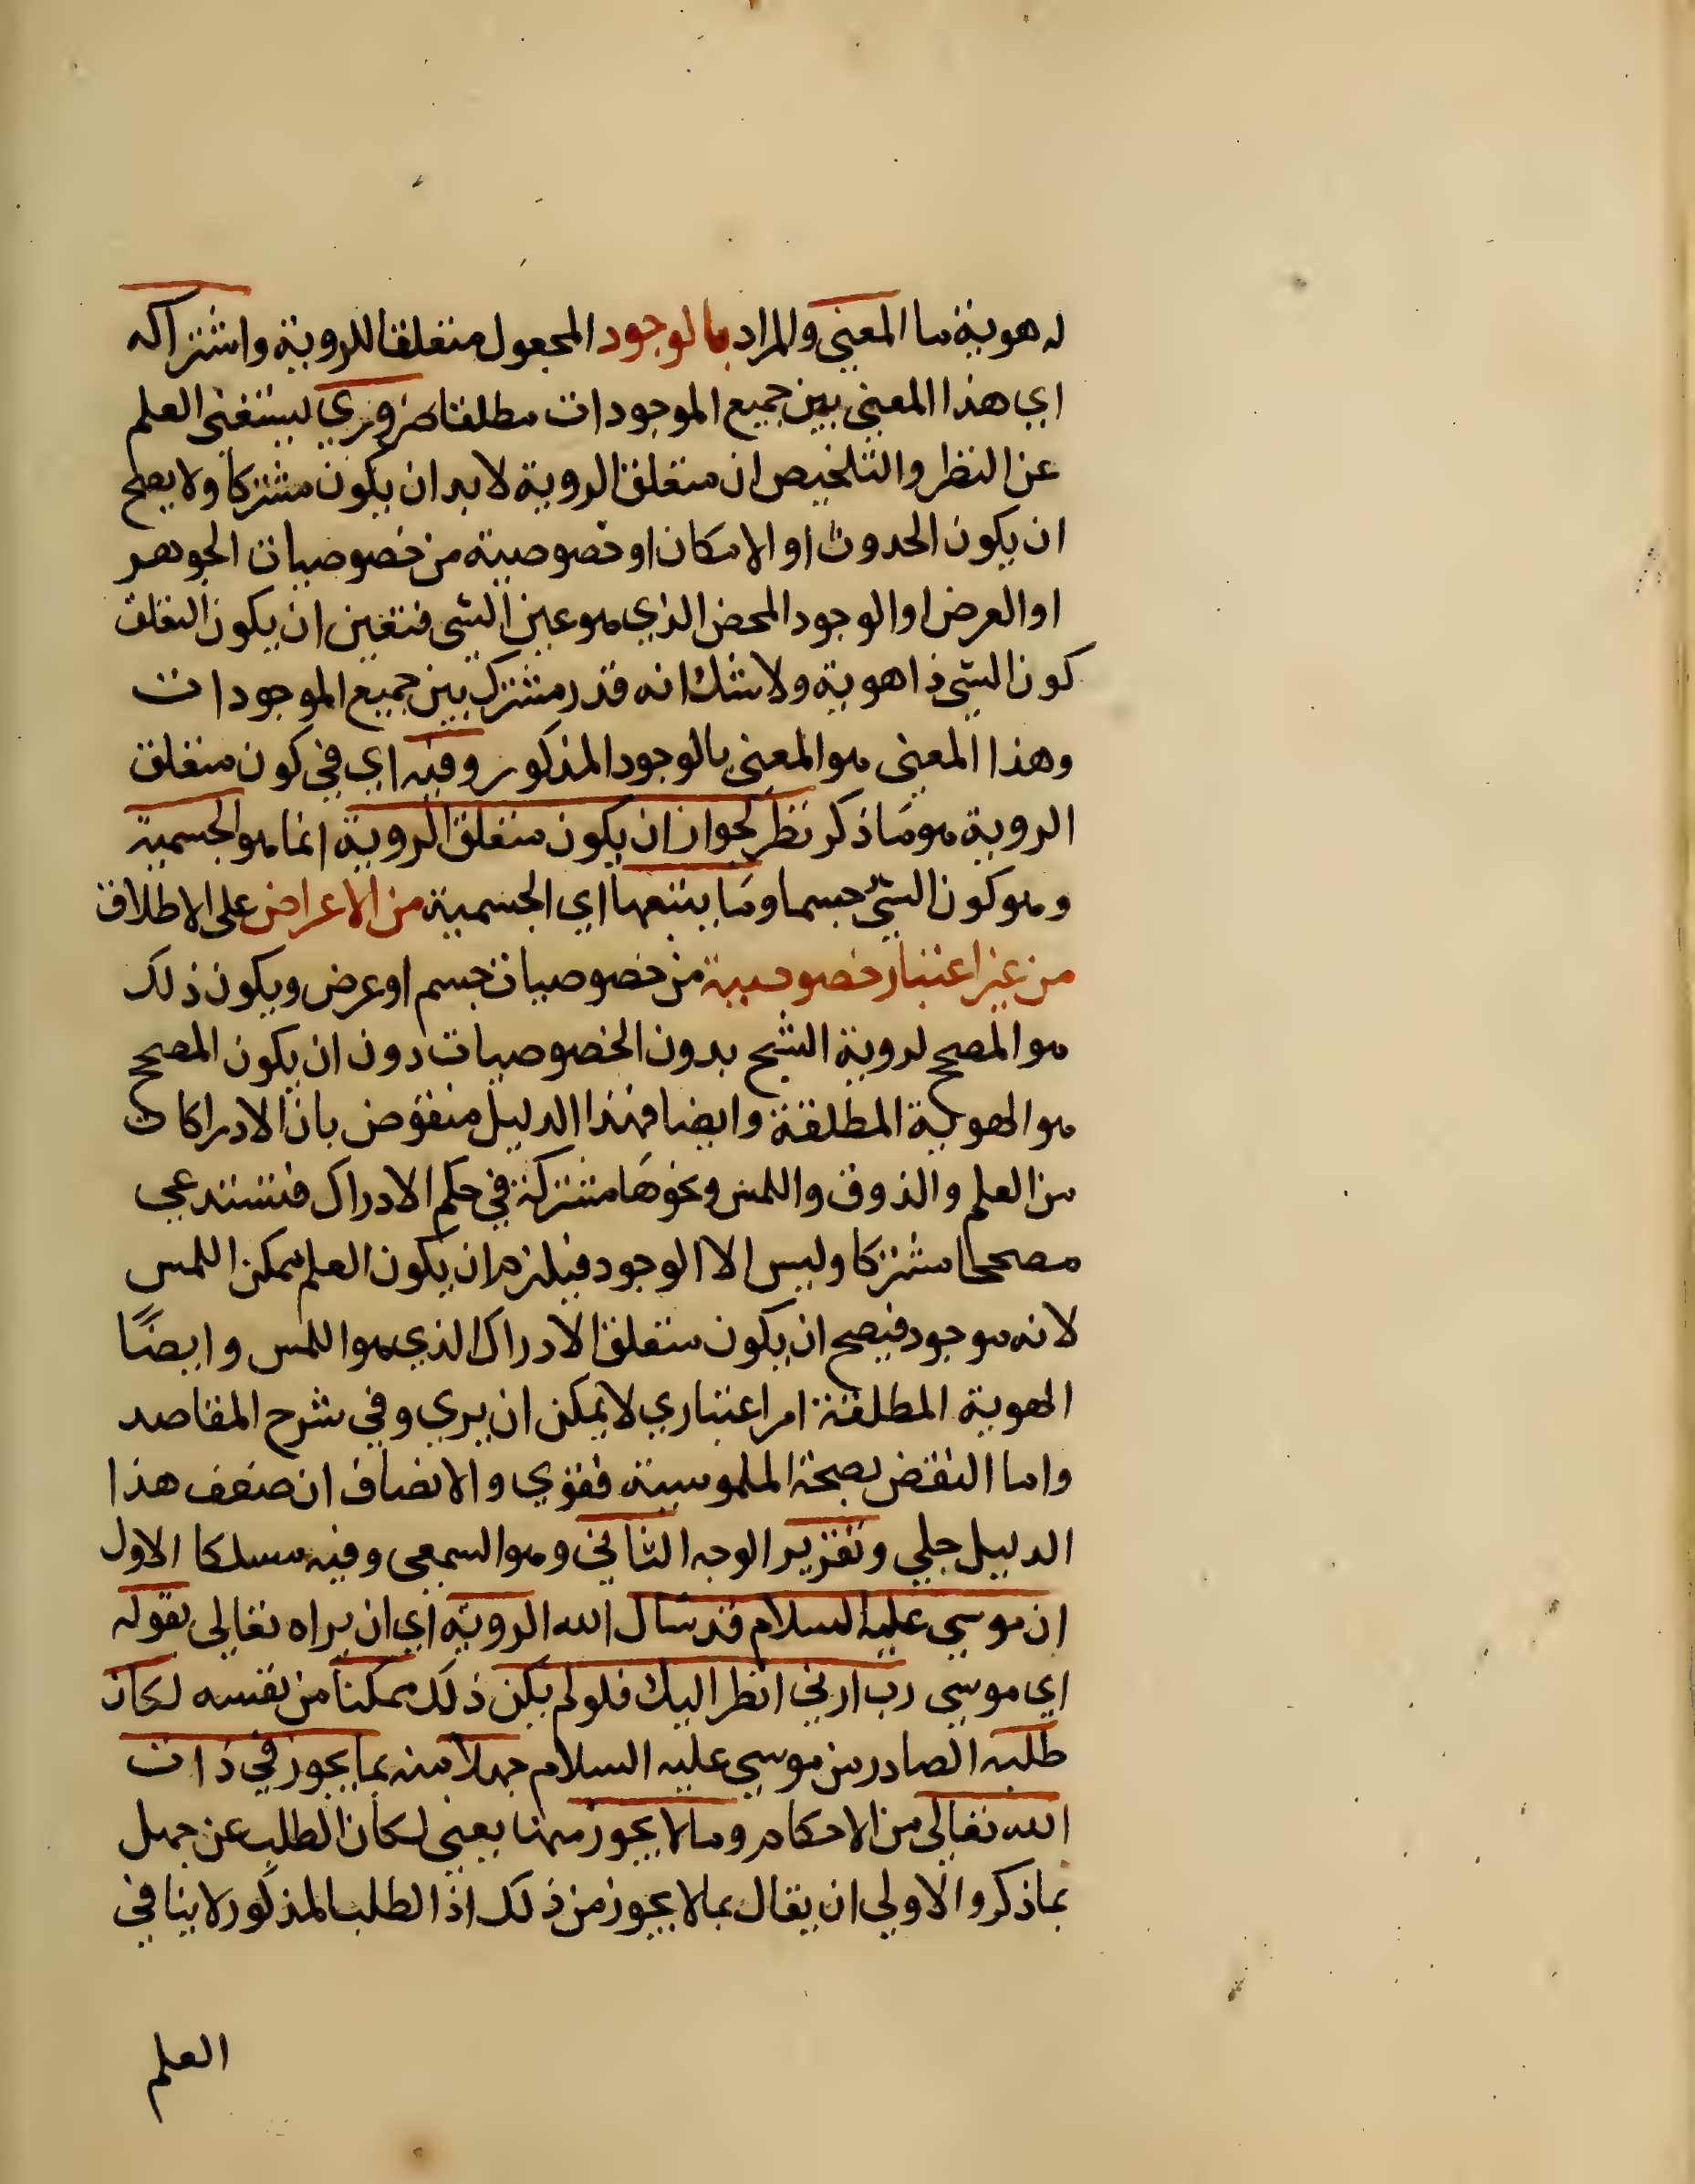 له هوية ما المعني والمراد بالوجود المجعول متعلقا للروية واشتراكه
اي هذا المعني بين جميع الموجودات مطلقا ضروري ليستغنى العلم
عن النظر والتلخيص ان متعلق الروية لا بد ان يكون مشتركا ولا يصلح
ان يكون الحدوث او الامكان او خصوصية من خصوصيات الجوهر
او العرض او الوجود المحض الذي هو عين الشي فتعين ان يكون التعلق
كون الشي ذا هوية ولا شك انه قدر مشترك بين جميع الموجودات
وهذا المعني هو المعني بالوجود المذكور وفيه اي في كون متعلق
الروية هو ما ذكر نظر لجواز ان يكون متعلق الروية انما هو الجسمية
وهو كون الشي جسما وما يتبعها اي الجسمية من الاعراض على الاطلاق
من غير اعتبار خصوصية من خصوصيات جسم او عرض ويكون ذلك
هو المصحح لروية الشبح بدون الخصوصيات دون ان يكون المصحح
هو الهوية المطلقة وايضا فهذا الدليل منقوض بان الادراكات
من العلم والذوق واللمس ونحوها مشتركة في حكم الادراك فتستدعي
مصححا مشتركا وليس الا الوجود فيلزم ان يكون العلم ممكن اللمس
لانه موجود فيصح ان يكون متعلق الادراك الذي هو اللمس وايضًا
الهوية المطلقة امر اعتباري لا يمكن ان يري وفي شرح المقاصد
واما النقض بصحة الملموسية فقوي والانصاف ان ضعف هذا
الدليل جلي وتقرير الوجه الثاني وهو السمعي وفيه مسلكا الاول
ان موسي عليه السلام قد سال الله الروية اي ان يراه تعالى بقوله
اي موسي رب ارني انظر اليك فلو لم يكن ذلك ممكنا من نفسه لكان
طلبه الصادر من موسي عليه السلام جهلا منه بما يجوز في ذات
الله تعالى من الاحكام وما لا يجوز منها يعني لكان الطلب عن جهل
بما ذكر والاولي ان يقال بما لا يجوز من ذلك اذ الطلب المذكور لا ينافي
العلم